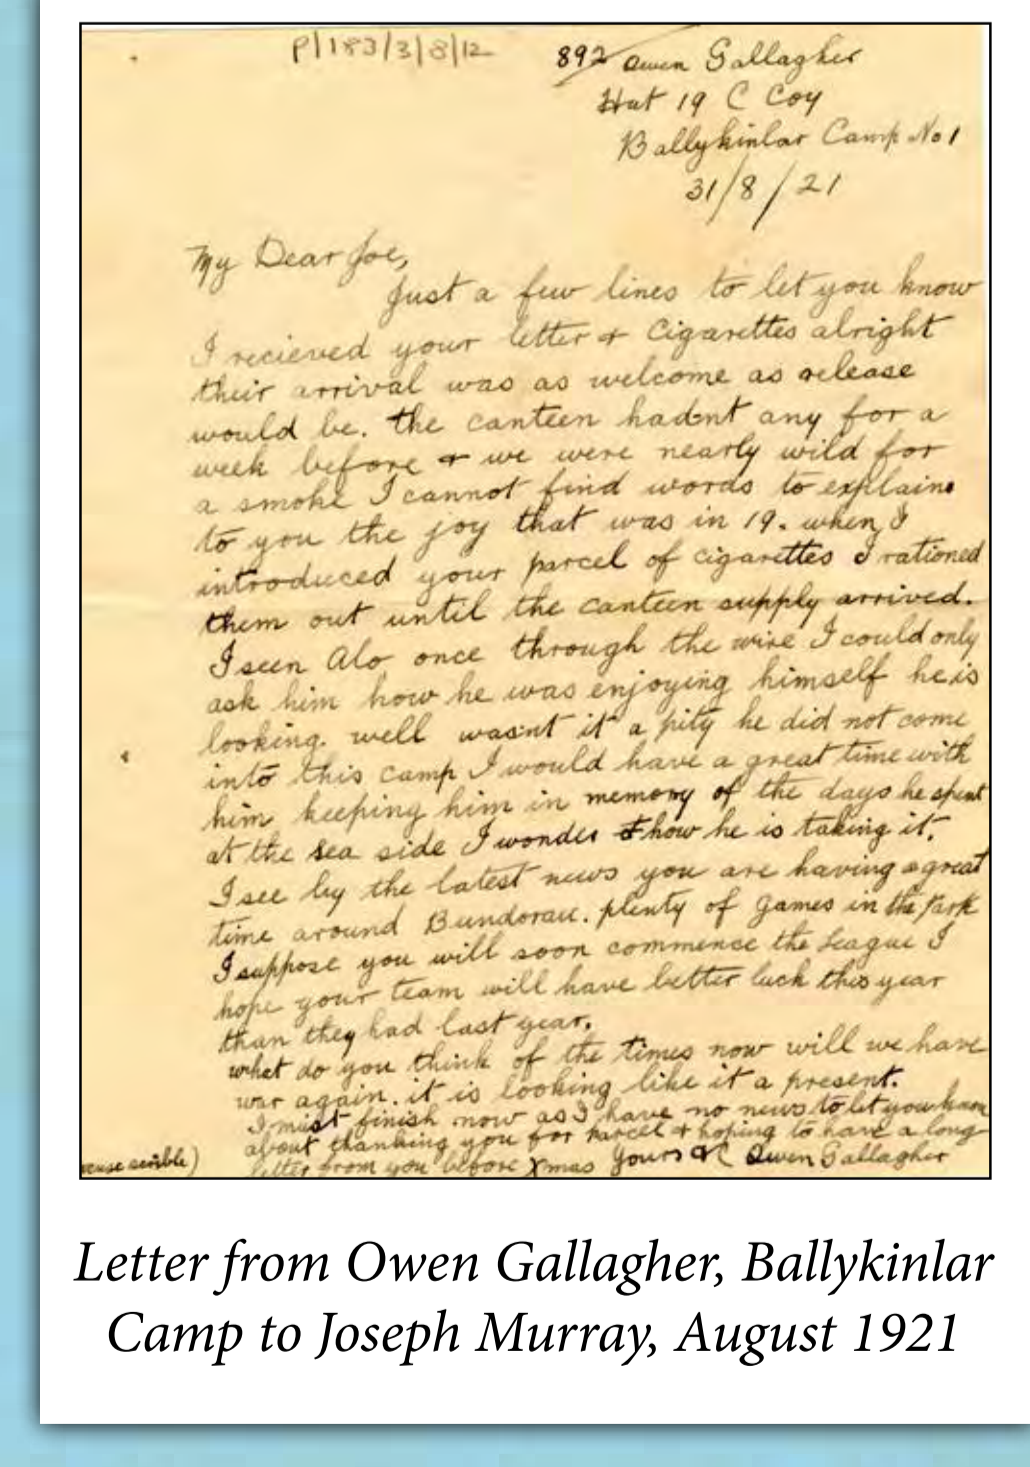 P/183/3/8/12
892 Owen Gallagher
Hut 19 C Coy
Ballykinlar Camp No 1
31/8/21
My Dear Joe,
Just a few lines to let you know
I recieved your letter + Cigarettes alright
their arrival was as welcome as release
would be. the canteen hadnt any for a
week before + we were nearly wild for
a smoke I cannot find words to explain
to you the joy that was in 19. when I
introduced your parcel of cigarettes I rationed
them out until the canteen supply arrived.
I seen Alo once through the wire I could only
ask him how he was enjoying himself he is
looking. well wasnt it a pity he did not come
into this camp I would have a great time with
him keeping him in memory of the days he spent
at the sea side I wonder how he is taking it.
I see by the latest news you are having a great
time around Bundoran. plenty of games in the Park
I suppose you will soon commence the League I
hope your team will have better luck this year
than they had last year.
what do you think of the times now will we have
war again. it is looking like it a present.
I must finish now as I have no news to let you know
about thanking you for parcel + hoping to have a long
letter from you before Xmas Yours &c Owen Gallagher
scrible)
Letter from Owen Gallagher, Ballykinlar
Camp to Joseph Murray, August 1921